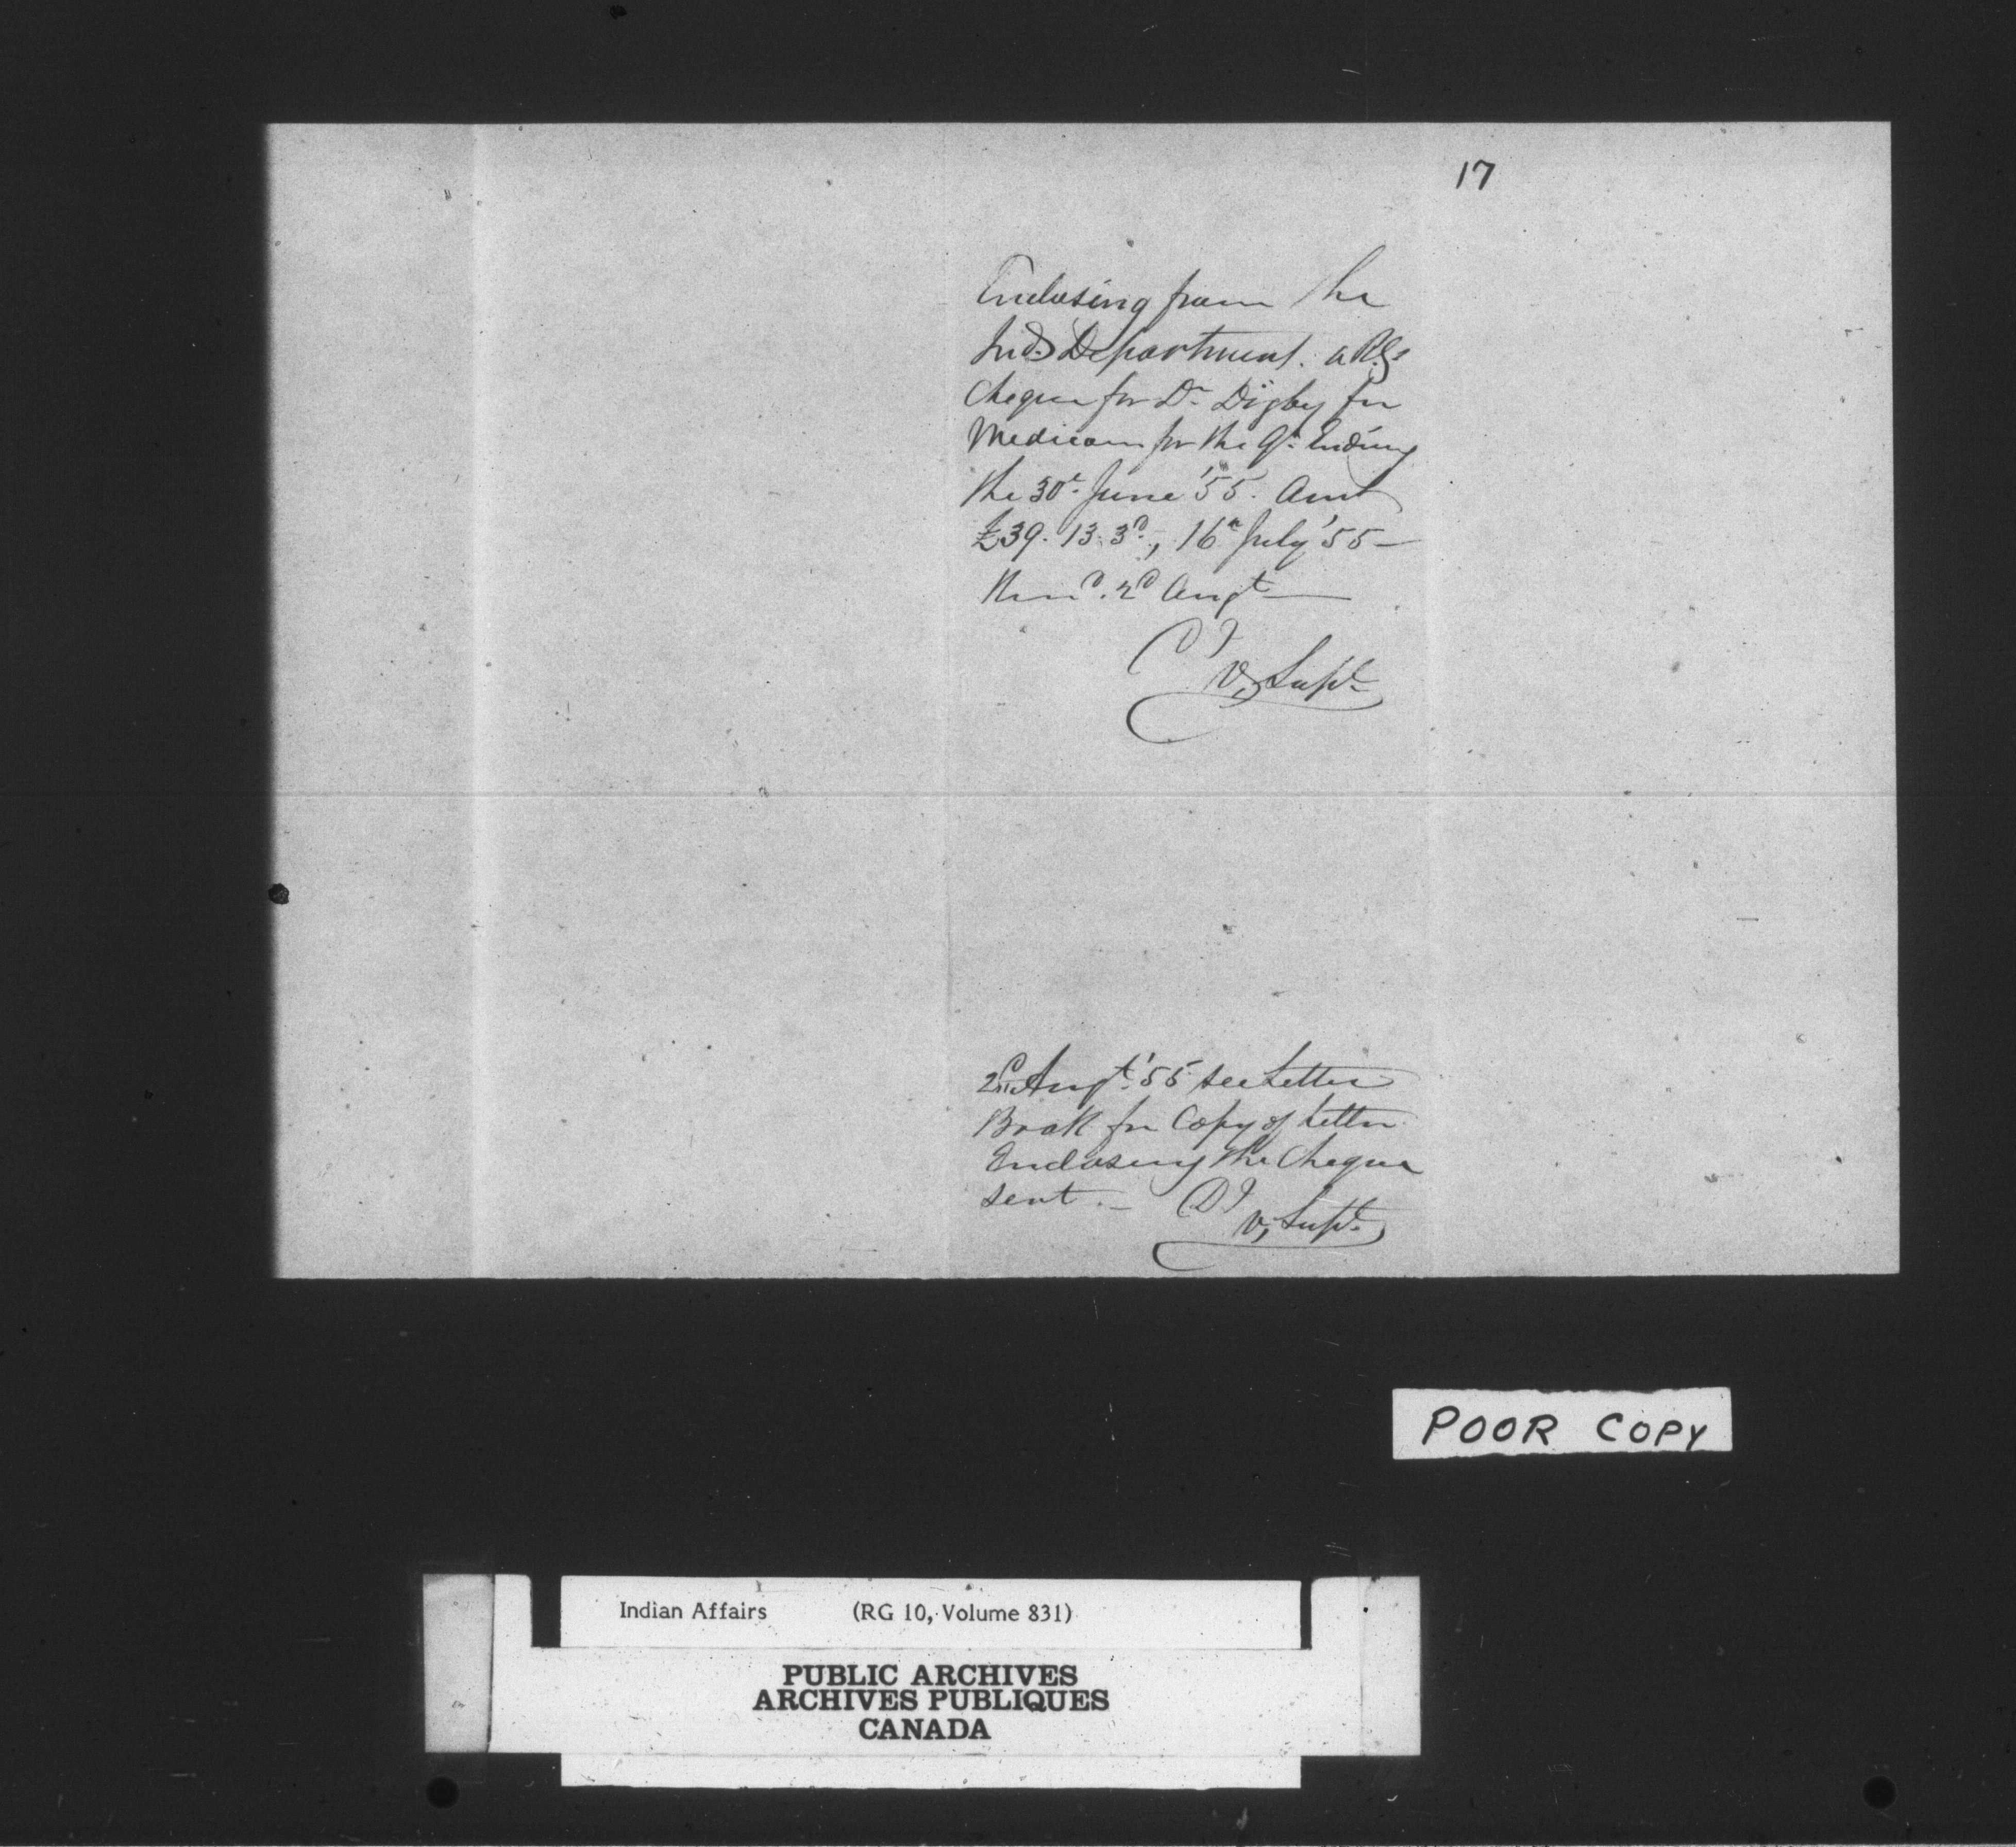 17
Enclosing from the
Ind. Department. a
Cheque for Dr Digby for
Medicine for the Qr. Ending
the 30t. June '55. Amt
£39. 13. 3d., 16th July '55 —
2d Augt —
V. Supt.
2d Augt. '55 see Letter
Book for Copy of Letter
Enclosing the Cheque
sent. —
V. Supt.
POOR COPY
Indian Affairs (RG 10, Volume 831)
PUBLIC ARCHIVES
ARCHIVES PUBLIQUES
CANADA